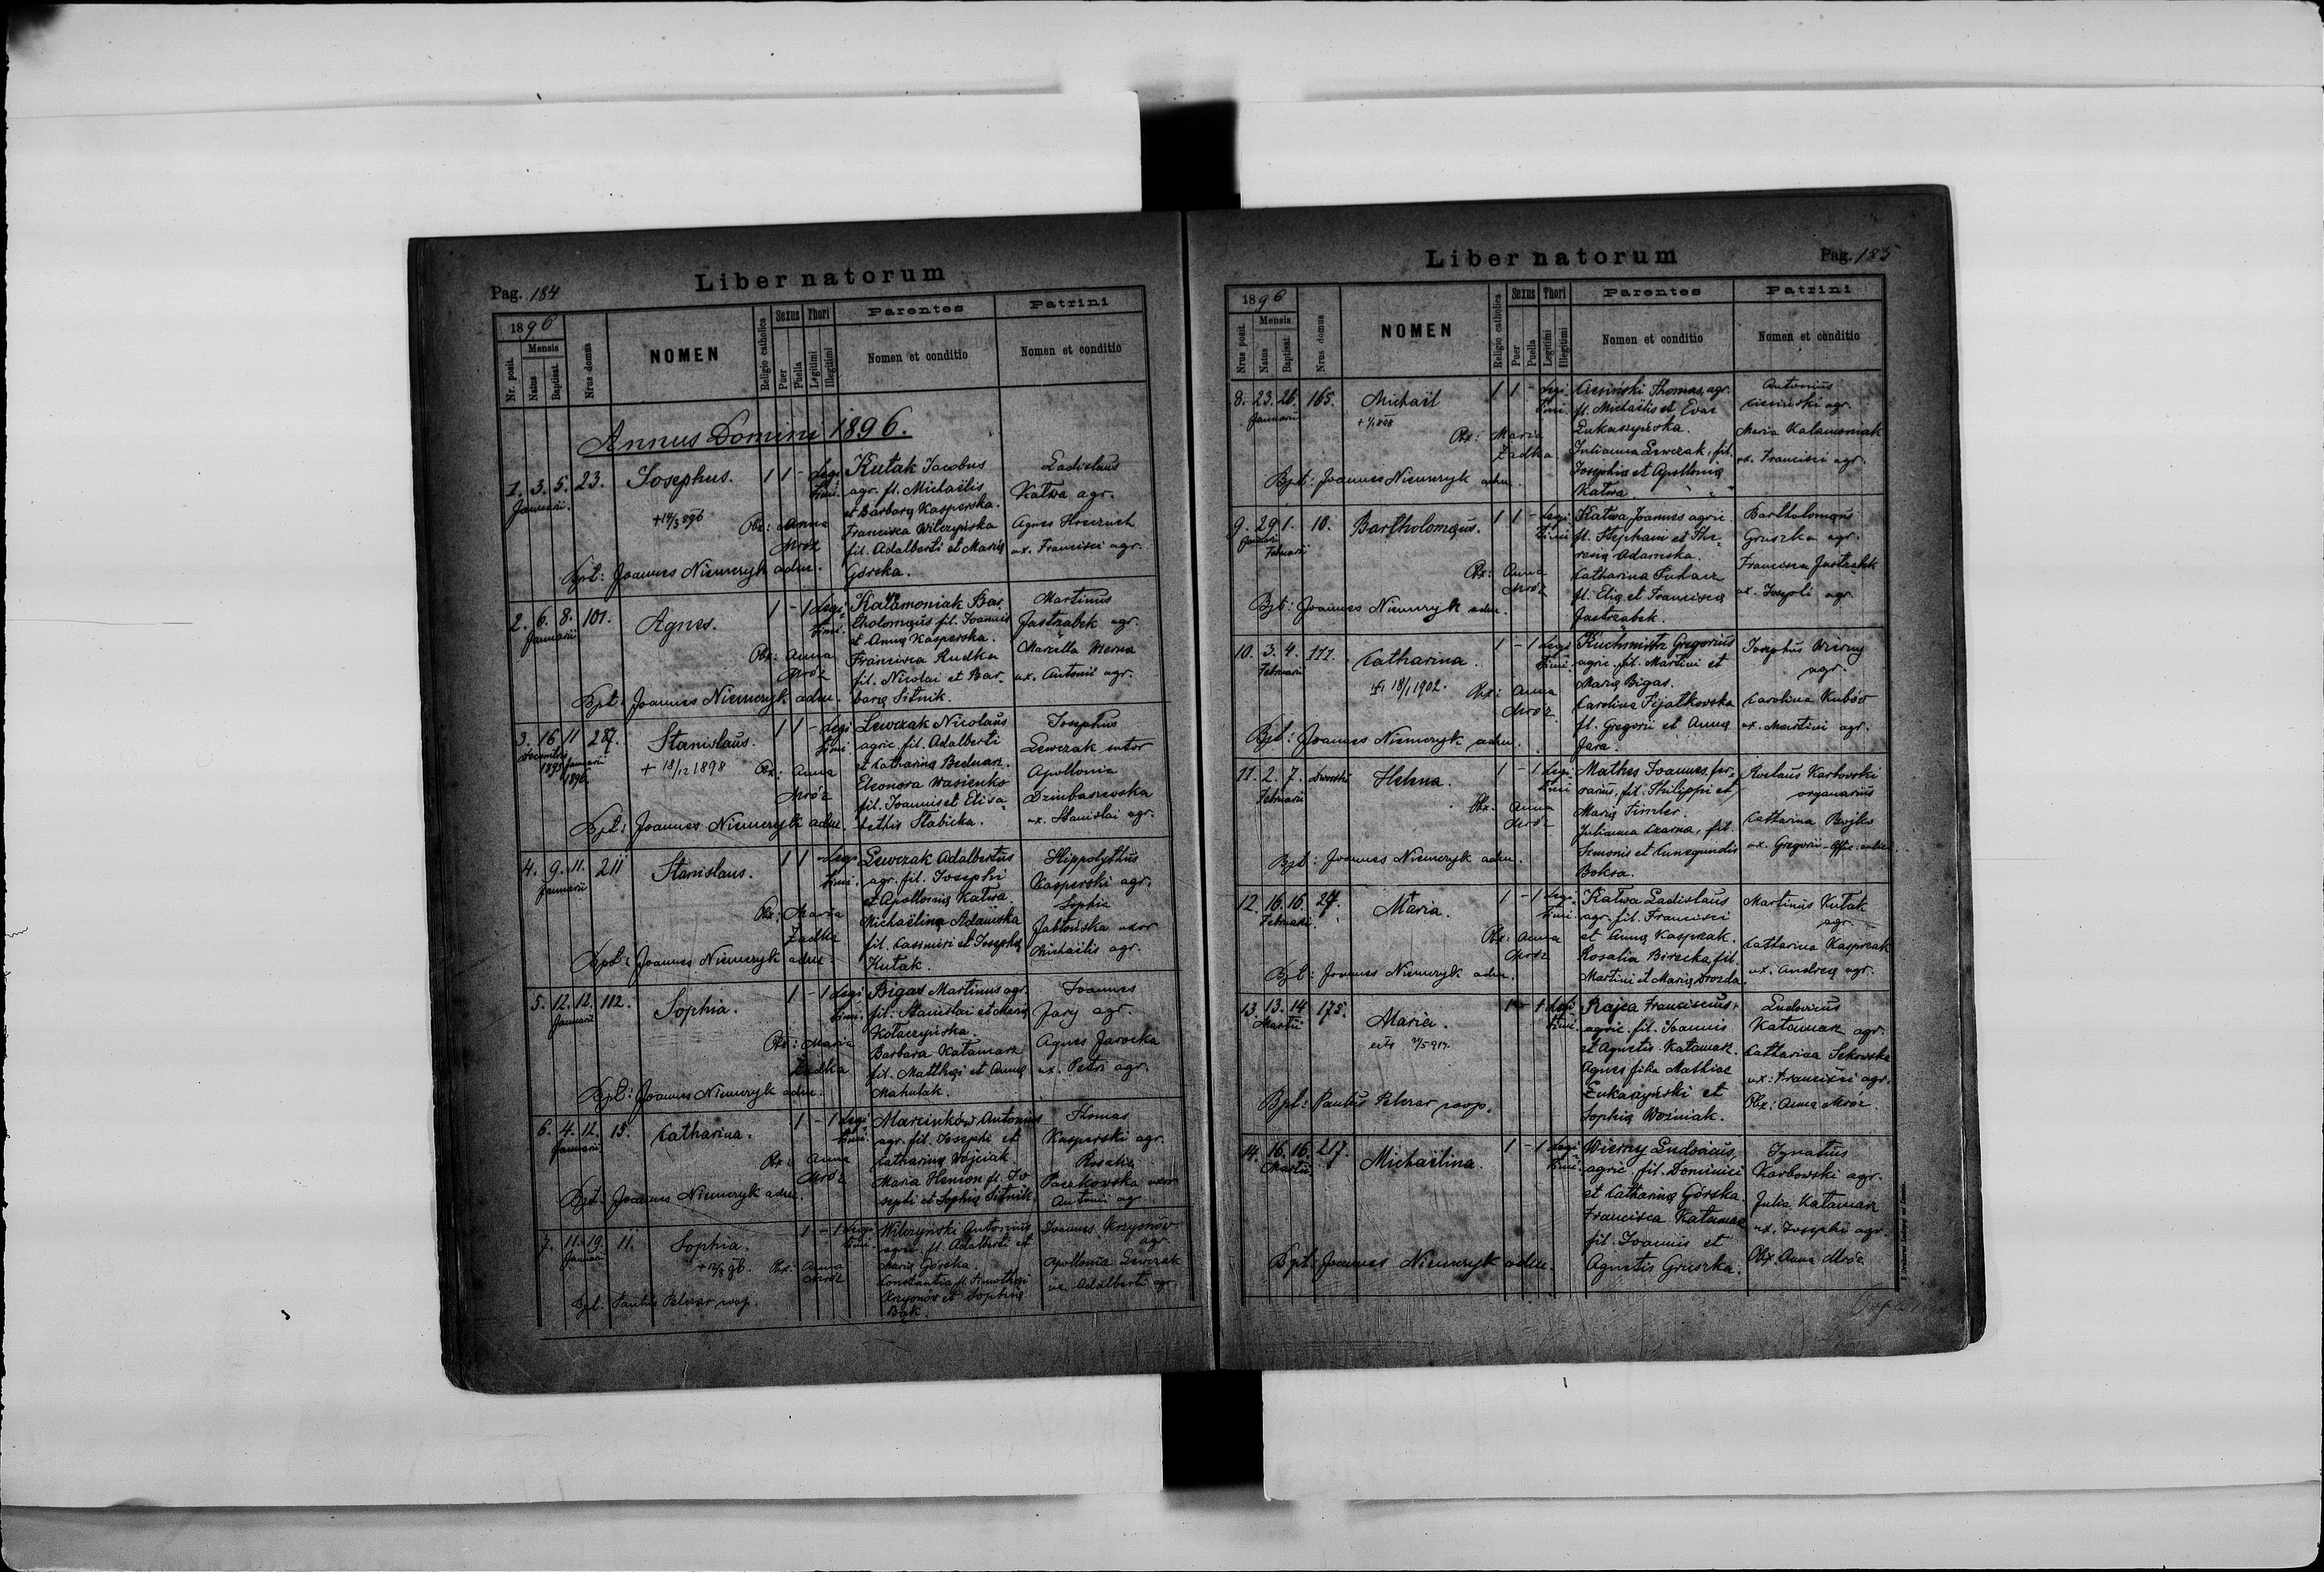 Pag. 184
Liber natorum
1896
Nr. posit.
Mensis
Natus
Baptisat.
Nrus domus
NOMEN
Religio catholica
Sexus
Puer
Puella
Thori
Legitimi
Illegitimi
Parentes
Nomen et conditio
Patrini
Nomen et conditio
Annus Domini 1896.
1. 3. 5. 23. Josephus. 1 1 - Legi
Januarii. timi.
Obx: Anna
Mróz
Bpt: Joannes Niemczyk adm.
Kutak Jacobus
agr. fil. Michaëlis
et Barbarę Kasperska.
Francisca Wilczyńska
fil. Adalberti et Marię
Górska.
Ladislaus
Katwa agr.
Agnes
ux. Francisci agr.
2. 6. 8. 101. Agnes. 1 - 1 Legi
Januarii timi.
Obx: Anna
Mróz
Bpt: Joannes Niemczyk adm.
Kalamoniak Bar
tholomęus fil. Joannis
et Annę Kasperska.
Francisca Rudka
fil. Nicolai et Bar-
barę Sitnik.
Martinus
Jastrzabek agr.
Marcella Wierna
ux. Antonii agr.
3. 16 11 287. Stanislaus. 1 1 - Legi
Decembri Januarii timi.
1895 1896
+ 18/12 1898 Obx: Anna
Mróz
Bpt: Joannes Niemczyk adm.
Lewczak Nicolaus
agric. fil. Adalberti
et Catharinę Bednarz.
Eleonora Wasienko
fil. Joannis et Elisa-
bethis Stabicka.
Josephus
Lewczak sutor
Apollonia
Dziubaszewska
ux. Stanislai agr.
4. 9. 11. 211 Stanislaus. 1 1 - Legi
Januarii timi.
Obx: Maria
Żadka
Bpt: Joannes Niemczyk adm.
Lewczak Adalbertus
agr. fil. Josephi
et Apollonię Katwa.
Michaëlina Adamska
fil. Casimiri et Josephę
Kutak.
Hippolythus
Kasperski agr.
Sophia
Jabłońska uxor
Michaëlis agr.
5. 12. 12. 112. Sophia. 1 - 1 Legi
Januarii timi.
Obx: Maria
Żadka
Bpt: Joannes Niemczyk adm.
Bigas Martinus agr.
fil. Stanislai et Marię
Kołaczyńska.
Barbara Katamarz
fil. Matthęi et Annę
Mahutak.
Joannes
Jary agr.
Agnes Jarocka
ux. Petri agr.
6. 4. 12. 15. Catharina. 1 - 1 Legi
Januarii timi.
Obx: Anna
Mróz
Bpt: Joannes Niemczyk adm.
Marcinków Antonius
agr. fil. Josephi et
Catharinę Wójciak.
Maria Hemon fil. Jo
sephi et Sophię Sitnik.
Thomas
Kasperski agr.
Rosalia
Paczkowska uxor
Antonii agr.
7. 11. 19. 11. Sophia. 1 - 1 Legi
Januarii timi.
Obx: Anna
Mróz
Bpt: Paulus Pelczar coop.
Wilczyński Antonius
agric. fil. Adalberti et
Marię Górska
Constantia fil. Timothęi
Krzyonów et Sophię
Bąk.
Joannes Krzyonów
agr.
Apollonia Lewczak
ux. Adalberti agr.
Liber natorum
Pag. 185
1896
Nrus posit.
Mensis
Natus
Baptisat.
Nrus domus
NOMEN
Religio catholica
Sexus
Puer
Puella
Thori
Legitimi
Illegitimi
Parentes
Nomen et conditio
Patrini
Nomen et conditio
8. 23. 26. 165. Michaël 1 1 - Legi
Januarii timi.
Obx: Maria
Żadka
Bpt: Joannes Niemczyk adm.
Cieśiński Thomas, agr.
fil. Michaëlis et Evae
Łukaszyńska.
Julianna Lewczak, fil.
Josephi et Apollonię
Katwa.
Antonius
Cieśiński agr.
Maria Kalamoniak
ux. Francisci agr.
9. 29 1. 10. Bartholomęus. 1 1 - Legi
Januarii timi
Februarii
Obx: Anna
Mróz
Bpt: Joannes Niemczyk adm.
Katwa Joannes agric
fil. Stephani et The-
resię Adamska.
Catharina Puhacz
fil. Elię et Franciscę
Jastrzabek.
Bartholomęus
Gruszka agr.
Francisca Jastrzabek
ux. Josephi agr.
10. 3. 4. 111. Catharina. 1 - 1 Legi
Februarii timi
+ 18/1 1902. Obx: Anna
Mróz
Bpt: Joannes Niemczyk adm.
Kuchmistrz Gregorius
agric. fil. Martini et
Marię Bigas.
Carolina Fijałkowska
fil. Gregorii et Annę
Jara.
Josephus Wierny
agr.
Carolina Kubów
ux. Martini agr.
11. 2. 7. Helena. 1 - 1 Legi
Februarii timi
Obx: Anna
Mróz
Bpt: Joannes Niemczyk adm.
Mathes Joannes, fer-
rarius, fil. Philippi et
Marię Timler.
Julianna Czarna, fil.
Semonis et Cunegundis
Boksa.
Karbowski
organarius
Catharina Bojko
ux. Gregorii
12. 16. 16. 27. Maria. 1 - 1 Legi
Februarii. timi
Obx: Anna
Mróz
Bpt: Joannes Niemczyk adm.
Katwa Ladislaus
agr. fil. Francisci
et Annę Kasprzak.
Rosalia Birecka, fil.
Martini et Marię Drozda.
Martinus Kutak
agr.
Catharina Kasprzak
ux. Andreę agr.
13. 13. 14 175. Maria. 1 - 1 Legi
Martii timi.
Bpt: Paulus Pelczar coop.
Rajca Franciscus,
agric. fil. Joannis
et Agnetis Katamarz.
Agnes filia Mathiae
Łukaszyński et
Sophię Woźniak.
Ludovicus
Katamarz agr.
Catharina Sekowska
ux. Francisci agr.
Obx: Anna Mróz.
14. 16. 16. 217. Michaëlina. 1 - 1 Legi
Martii timi.
Bpt: Joannes Niemczyk adm.
Wierny Ludovicus,
agric. fil. Dominici
et Catharinę Górska.
Francisca Katamarz
fil. Joannis et
Agnetis Gruszka.
Ignatius
Karbowski agr.
Julia Katamarz
ux. Josephi agr.
Obx. Anna Mróz